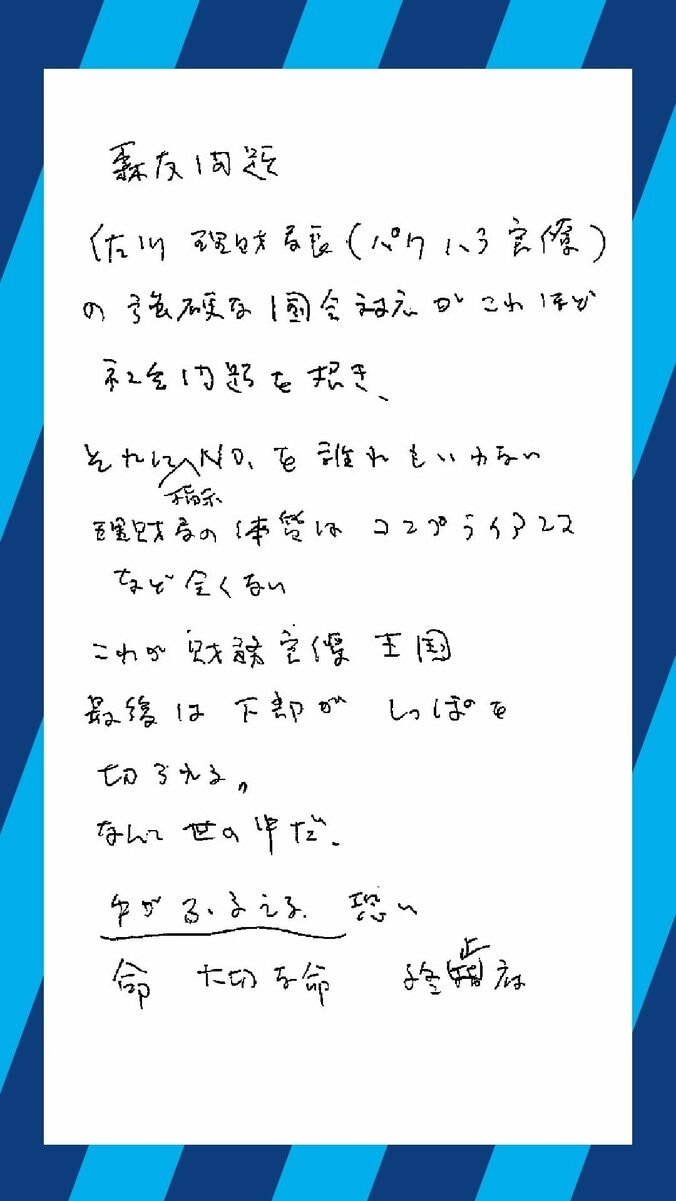 森友問題
佐川理財局長(パワハラ官僚)
の強硬な国会対応がこれほど
社会問題を招き、
それにNO.を誰れもいわない
指示
理財局の体質はコンプライアンス
など全くない
これが財務官僚王国
最後は下部がしっぽを
切られる。
なんて世の中だ、
手がふるえる、恐い
命 大切な命 終止府